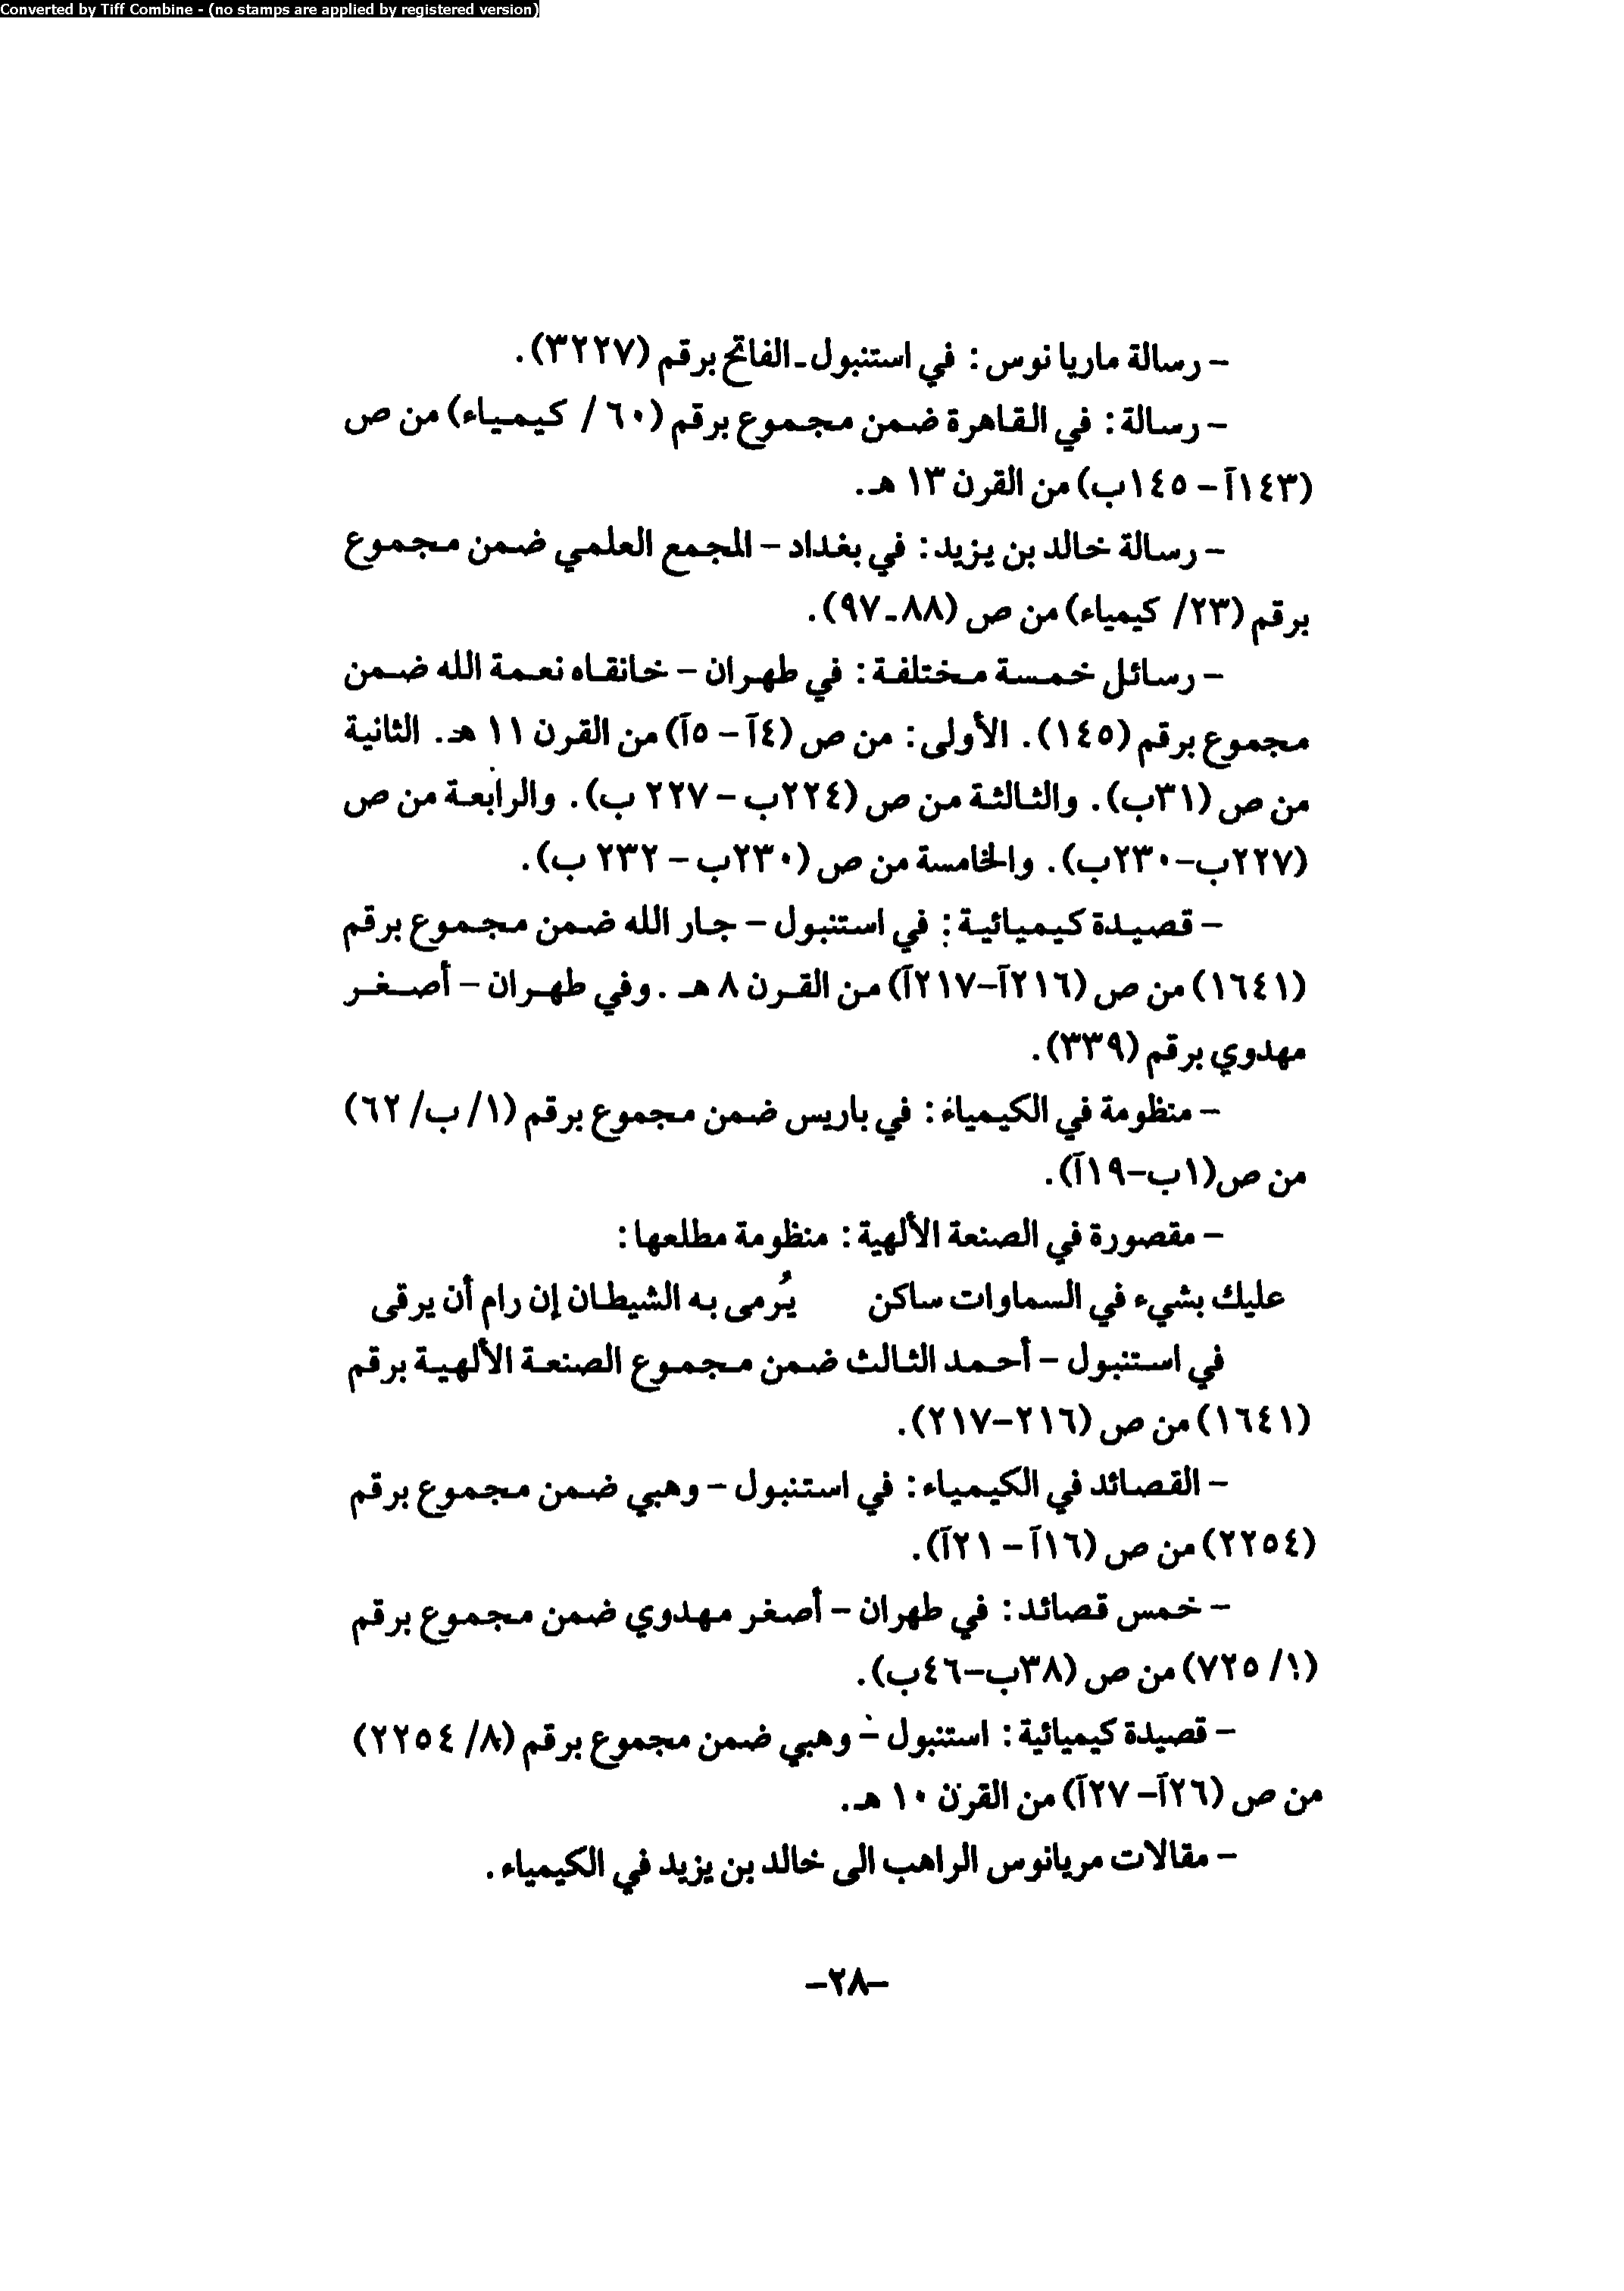 Converted by Tiff Combine - (no stamps are applied by registered version)
– رسالة ماريا نوس: في استنبول ـ الفاتح برقم (٣٢٢٧).
– رسالة: في القاهرة ضمن مجموع برقم (٦٠/ كيمياء) من ص
(١٤٣آ – ١٤٥ب) من القرن ١٣ هـ.
– رسالة خالد بن يزيد: في بغداد – المجمع العلمي ضمن مجموع
برقم (٢٣/ كيمياء) من ص (٨٨ـ٩٧).
– رسائل خمسة مختلفة: في طهران – خانقاه نعمة الله ضمن
مجموع برقم (١٤٥). الأولى: من ص (٤آ – ٥آ) من القرن ١١ هـ. الثانية
من ص (٣١ب). والثالثة من ص (٢٢٤ب – ٢٢٧ ب). والرابعة من ص
(٢٢٧ب–٢٣٠ب). والخامسة من ص (٢٣٠ب – ٢٣٢ ب).
– قصيدة كيميائية: في استنبول – جار الله ضمن مجموع برقم
(١٦٤١) من ص (٢١٦آ–٢١٧آ) من القرن ٨ هـ. وفي طهران – أصغر
مهدوي برقم (٣٣٩).
– منظومة في الكيمياء: في باريس ضمن مجموع برقم (١/ ب/ ٦٢)
من ص(١ب–١٩آ).
– مقصورة في الصنعة الألهية: منظومة مطلعها:
عليك بشيء في السماوات ساكن يُرمى به الشيطان إن رام أن يرقى
في استنبول – أحمد الثالث ضمن مجموع الصنعة الألهية برقم
(١٦٤١) من ص (٢١٦–٢١٧).
– القصائد في الكيمياء: في استنبول – وهبي ضمن مجموع برقم
(٢٢٥٤) من ص (١٦آ – ٢١آ).
– خمس قصائد: في طهران – أصغر مهدوي ضمن مجموع برقم
(١/ ٧٢٥) من ص (٣٨ب–٤٦ب).
– قصيدة كيميائية: استنبول – وهبي ضمن مجموع برقم (٨/ ٢٢٥٤)
من ص (٢٦آ– ٢٧آ) من القرن ١٠ هـ.
– مقالات مريانوس الراهب الى خالد بن يزيد في الكيمياء.
–٢٨–